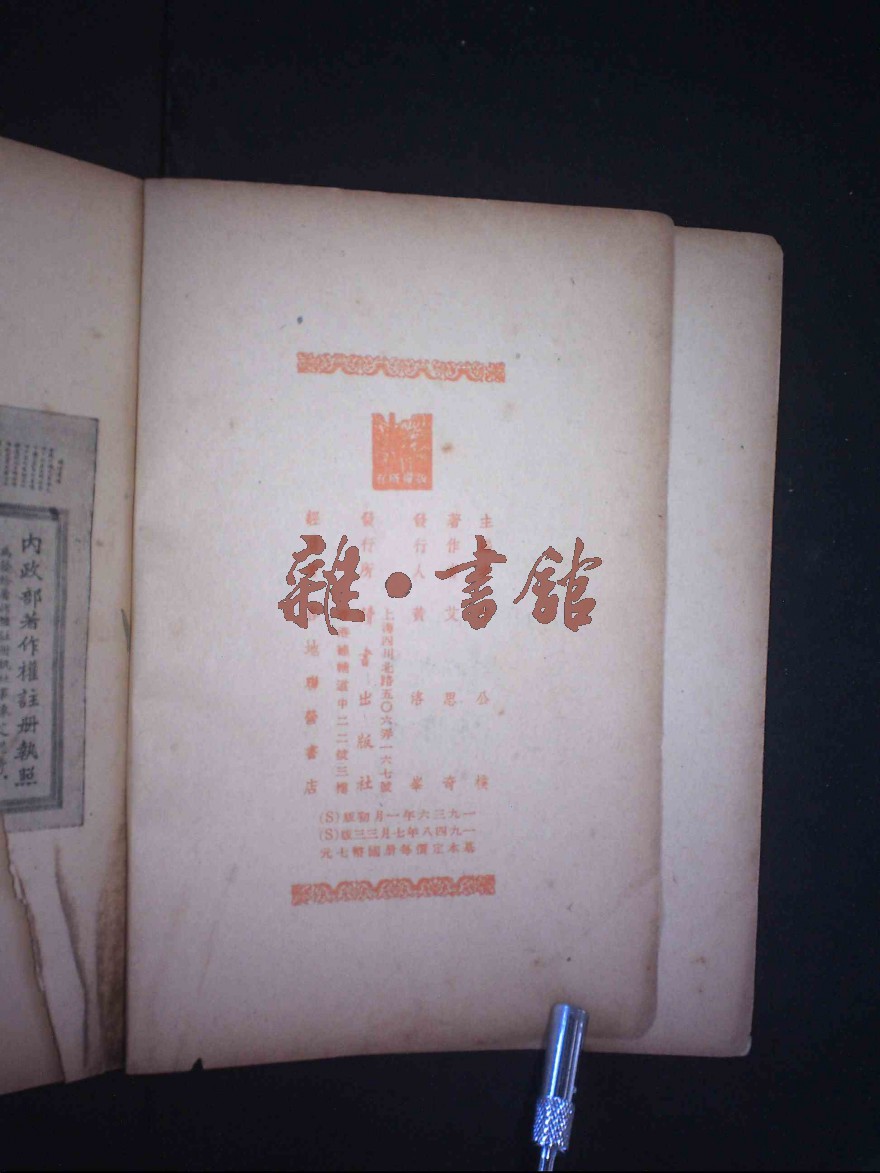 有所權版
主
公
樸
著作
艾
思
奇
發行人
黃
洛
峯
上海四川北路五〇六弄一六七號
發行所
讀書出版社
道中二二號三樓
經
地聯營書店
一九三六年一月初版(S)
一九四八年七月三三版(S)
基本定價每册國幣七元
內政部著作權註册執照
雜·書館